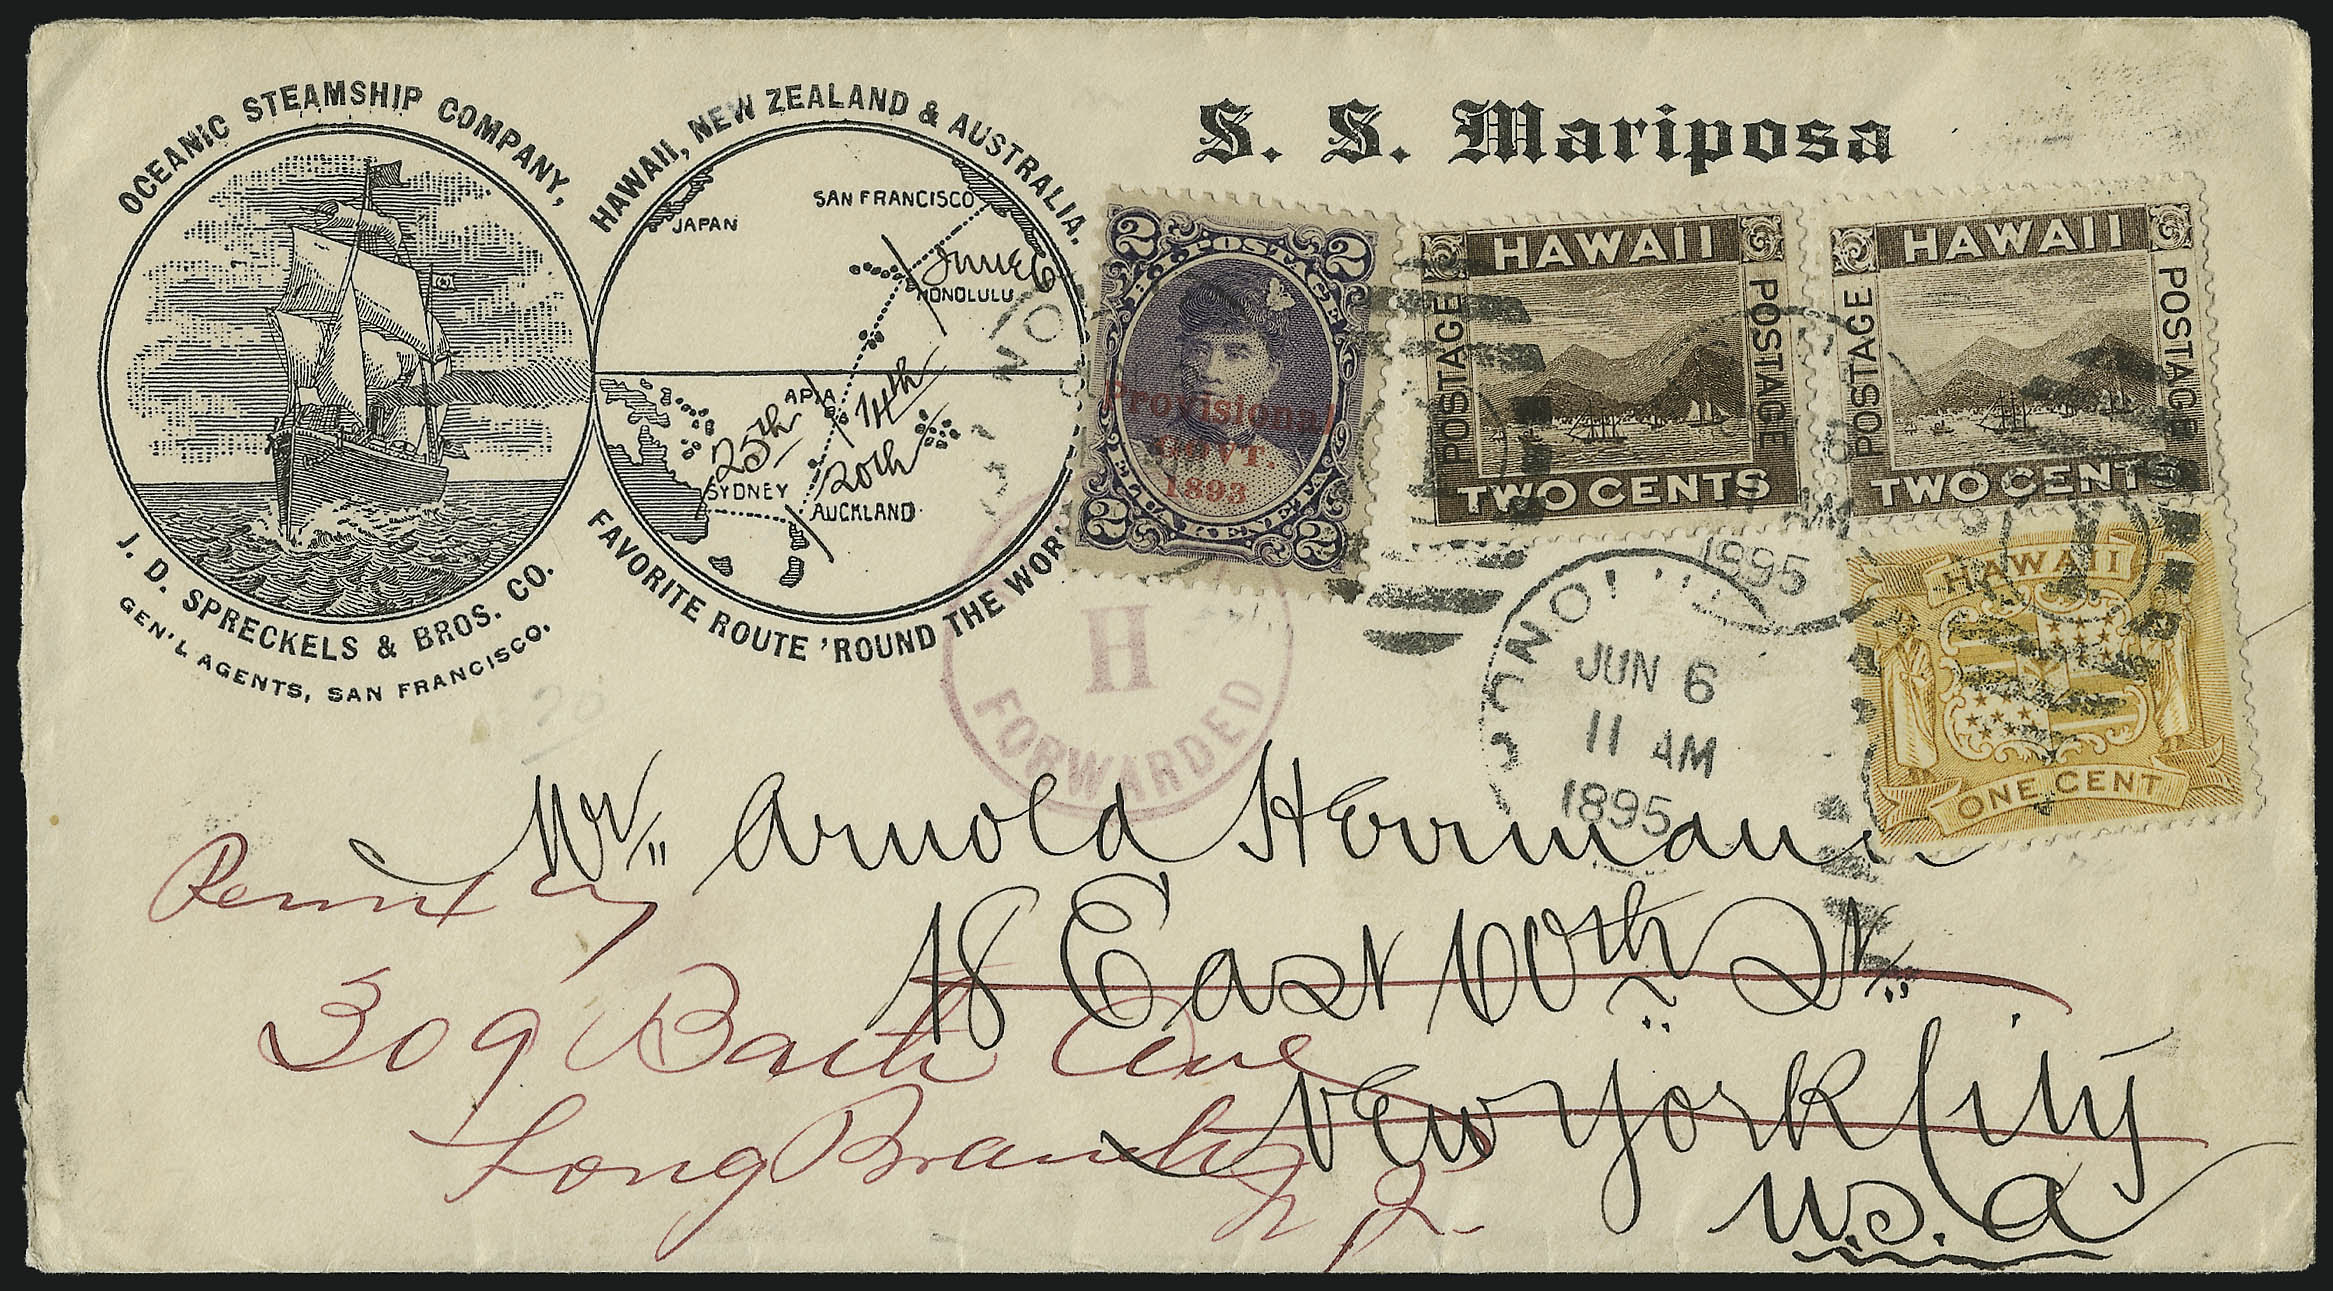 OCEANIC STEAMSHIP COMPANY,
J. D. SPRECKELS & BROS. CO.
GEN'L AGENTS, SAN FRANCISCO.
HAWAII, NEW ZEALAND & AUSTRALIA.
JAPAN
SAN FRANCISCO
June 6
HONOLULU
APIA
14th
25th
20th
SYDNEY
AUCKLAND
FAVORITE ROUTE 'ROUND THE WOR
S. S. Mariposa
2 POSTAGE 2
Provisional
GOVT.
1893
2 2
HAWAII
POSTAGE
POSTAGE
TWO CENTS
HAWAII
POSTAGE
POSTAGE
TWO CENTS
HAWAII
ONE CENT
AM
1895
JUN 6
11 AM
1895
H
FORWARDED
Mr. Arnold Herrmann
18 East 60th St.
New York City
U.S.A
309 Bath Ave
Long Branch
N J